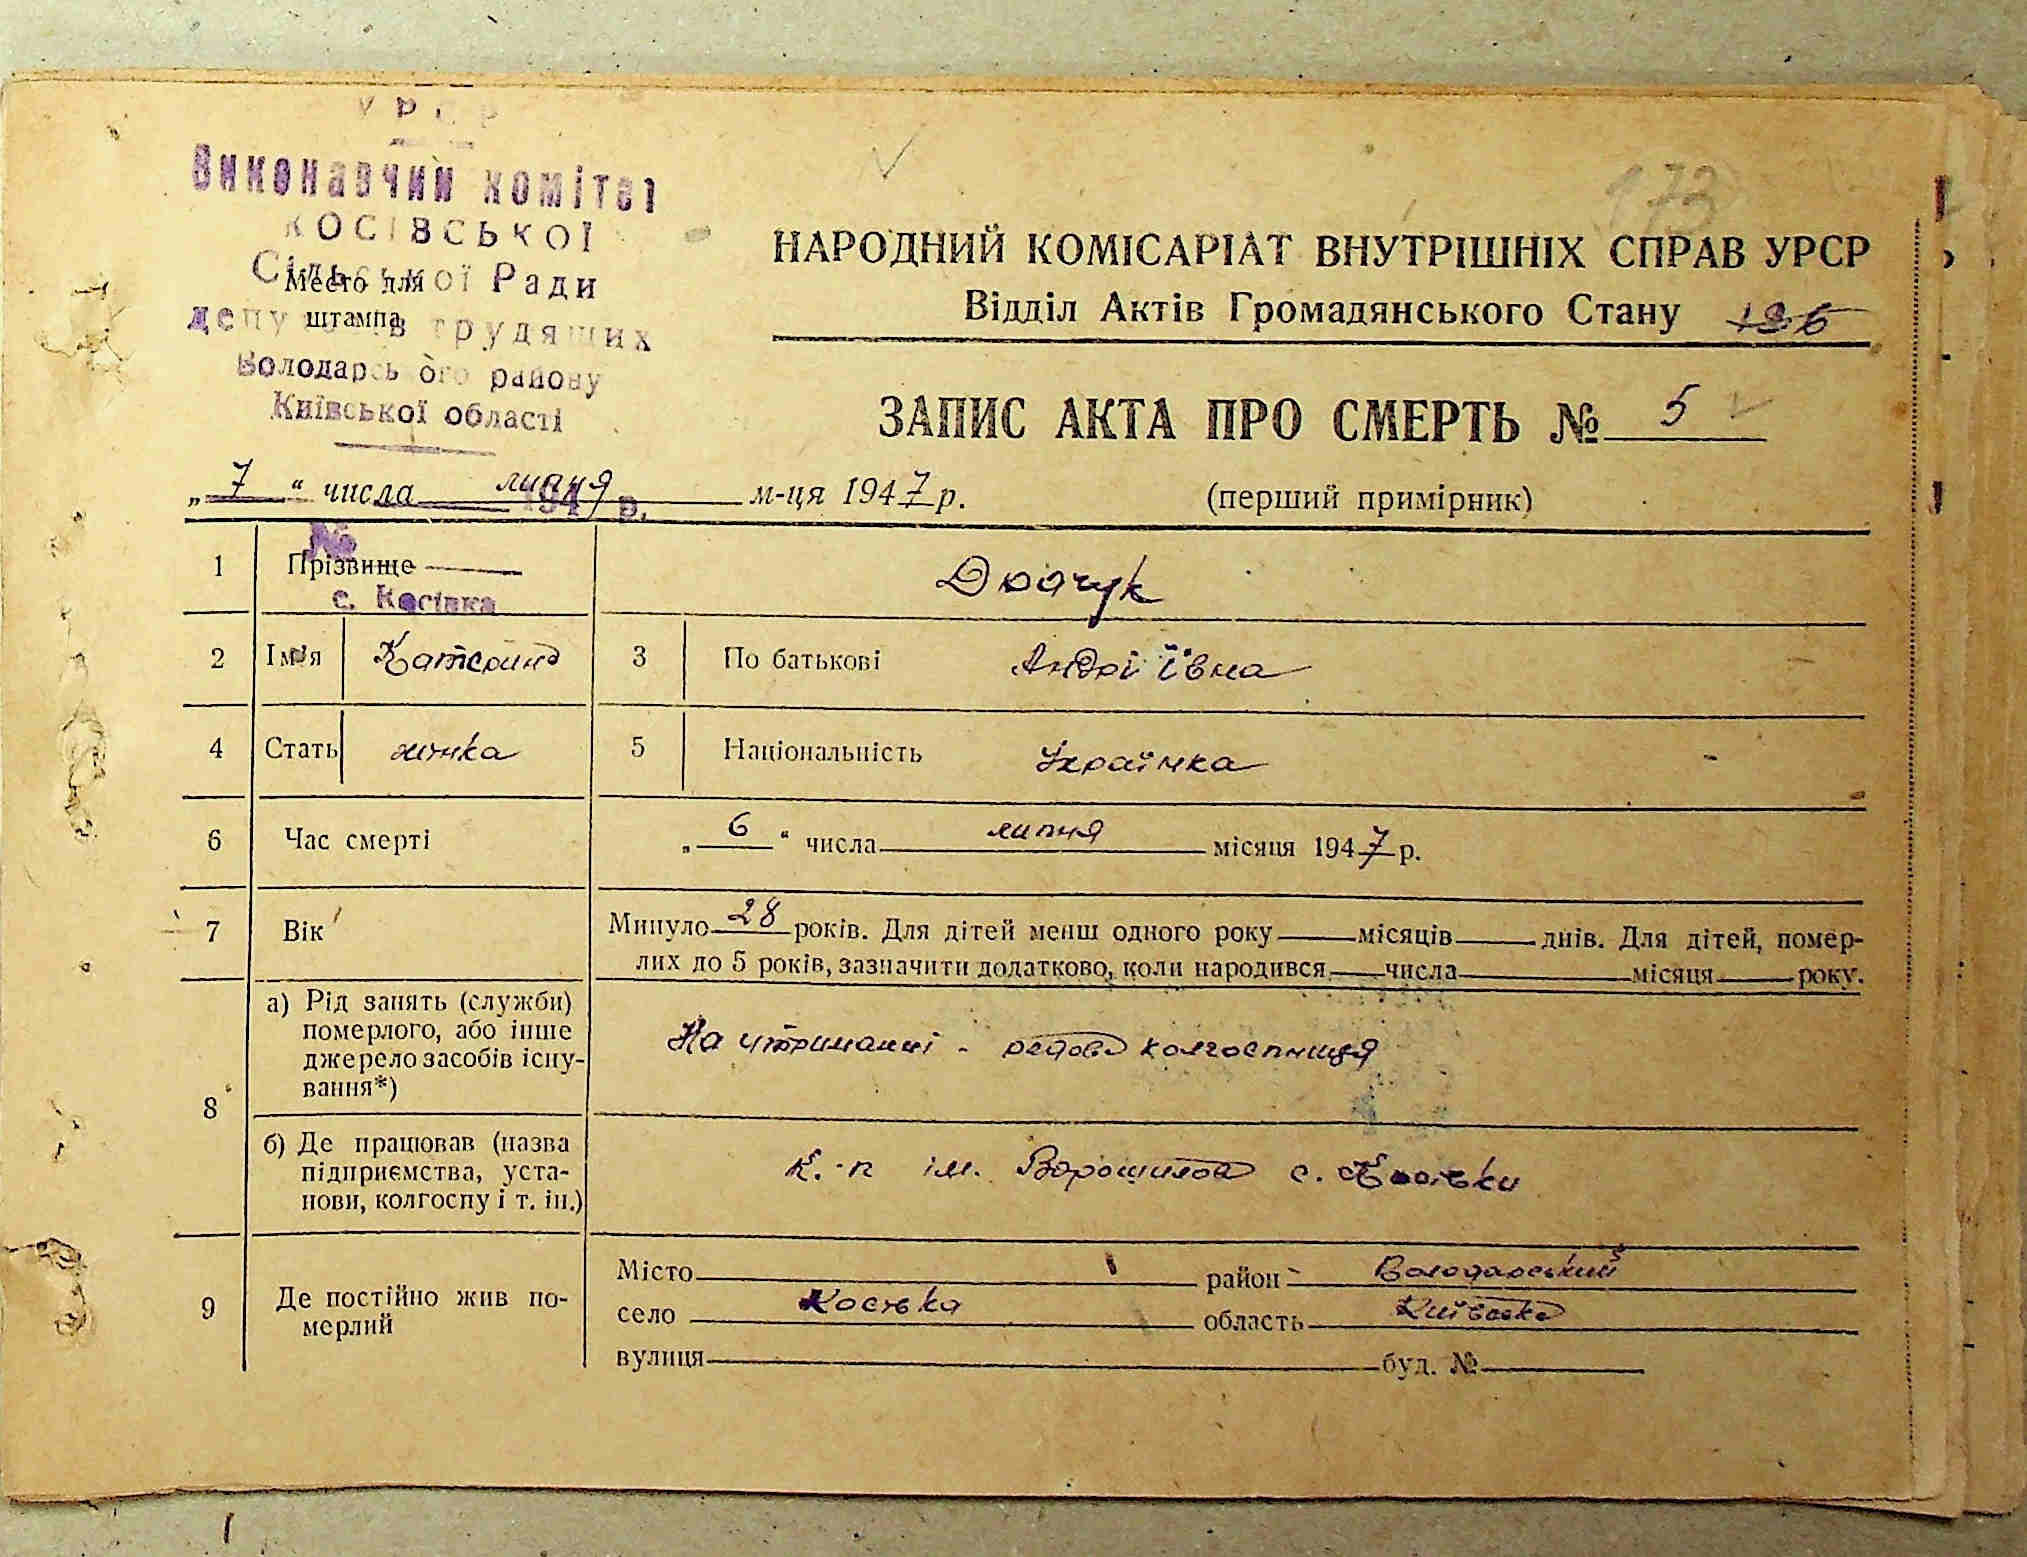 УРСР
Виконавчий комітет
КОСІВСЬКОЇ
Сільської Ради
депутатів трудящих
Володарського району
Київської області
194 р.
№
с. Косівка
Место для
штампа
173
НАРОДНИЙ КОМІСАРІАТ ВНУТРІШНІХ СПРАВ УРСР
Відділ Актів Громадянського Стану
ЗАПИС АКТА ПРО СМЕРТЬ № 5
„ 7 “ числа липня м-ця 1947 р. (перший примірник)
1 Прізвище
2 Ім'я Катерина 3 По батькові Андріївна
4 Стать жінка 5 Національність Українка
6 Час смерті „ 6 “ числа липня місяця 1947 р.
7 Вік Минуло 28 років. Для дітей менш одного року місяців днів. Для дітей, помер-
лих до 5 років, зазначити додатково, коли народився числа місяця року.
8 а) Рід занять (служби)
померлого, або інше
джерело засобів існу-
вання*)
На утриманні - рядова колгоспниця
б) Де працював (назва
підприємства, уста-
нови, колгоспу і т. ін.)
К.-п ім. Ворошилова с. Косівки
9 Де постійно жив по-
мерлий
Місто район Володарський
село Косівка область Київська
вулиця буд. №